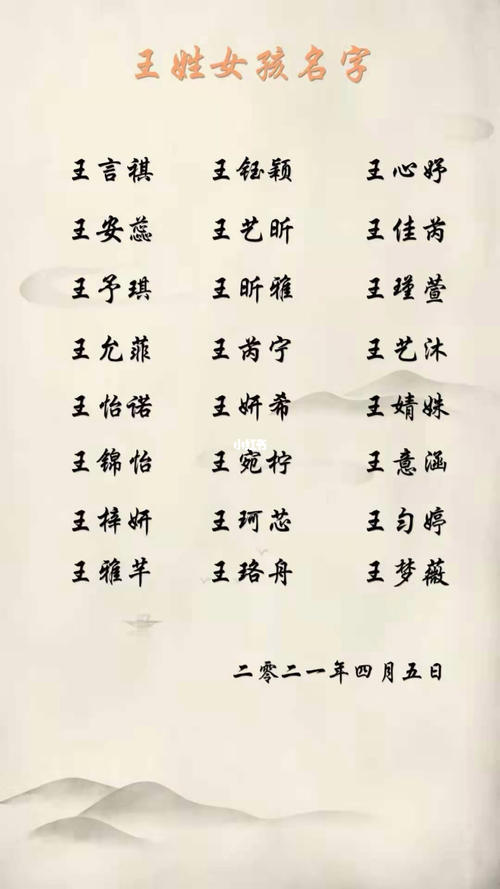 王姓女孩名字
王言祺 王钰颖 王心妤
王安蕊 王艺昕 王佳芮
王予琪 王昕雅 王瑾萱
王允菲 王芮宁 王艺沐
王怡诺 王妍希 王婧姝
小红书
王锦怡 王宛柠 王意涵
王梓妍 王珂芯 王匀婷
王雅芊 王珞舟 王梦薇
二零二一年四月五日